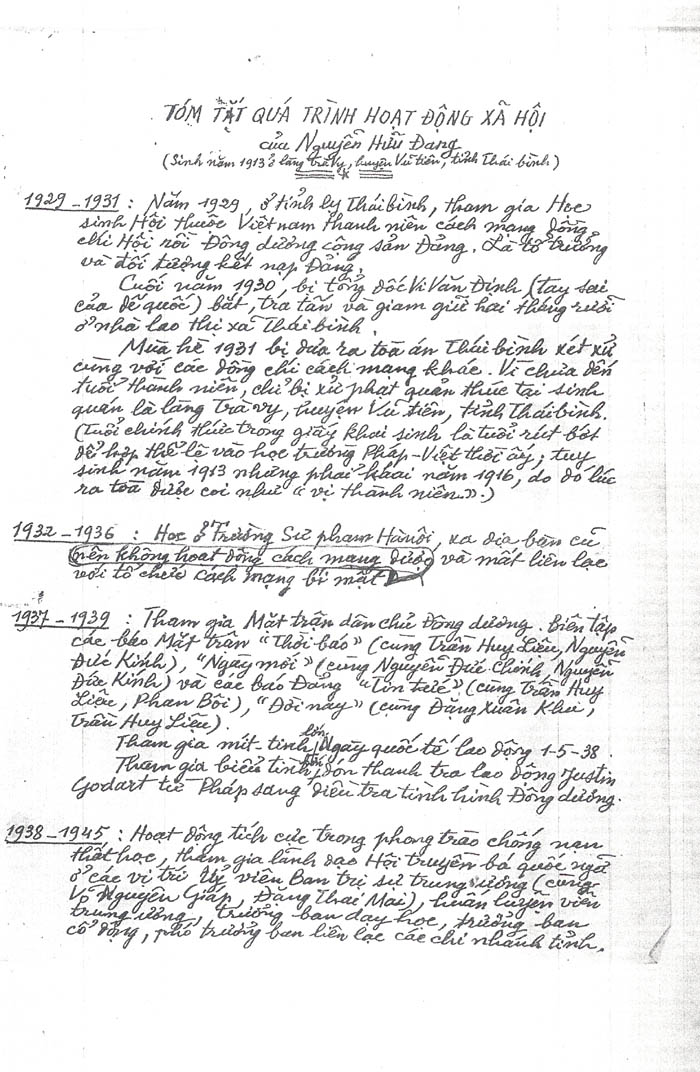 TÓM TẮT QUÁ TRÌNH HOẠT ĐỘNG XÃ HỘI
của Nguyễn Hữu Đang
(Sinh năm 1913 ở làng Trà Vy, huyện Vũ Tiên, tỉnh Thái bình)
1929 – 1931 : Năm 1929, ở tỉnh lỵ Thái bình, tham gia Học
sinh Hội thuộc Việt nam thanh niên cách mạng đồng
chí Hội rồi Đông dương cộng sản Đảng. Là tổ trưởng
và đối tượng kết nạp Đảng.
Cuối năm 1930, bị tổng đốc Vi Văn Định (tay sai
của đế quốc) bắt, tra tấn và giam giữ hai tháng rưỡi
ở nhà lao thị xã Thái bình.
Mùa hè 1931 bị đưa ra toà án Thái bình xét xử
cùng với các đồng chí cách mạng khác. Vì chưa đến
tuổi thành niên, chỉ bị xử phạt quản thúc tại sinh
quán là làng Trà Vy, huyện Vũ Tiên, tỉnh Thái bình.
(Tuổi chính thức trong giấy khai sinh là tuổi rút bớt
để hợp thể lệ vào học trường Pháp-Việt thời ấy; tuy
sinh năm 1913 nhưng phải khai năm 1916, do đó lúc
ra toà được coi như "vị thành niên".)
1932 – 1936 : Học ở Trường Sư phạm Hà nội, xa địa bàn cũ
nên không hoạt động cách mạng được và mất liên lạc
với tổ chức cách mạng bí mật
1937 – 1939 : Tham gia Mặt trận dân chủ Đông dương. Biên tập
các báo Mặt trận "Thời báo" (cùng Trần Huy Liệu, Nguyễn
Đức Kính), "Ngày mới" (cùng Nguyễn Đức Chính, Nguyễn
Đức Kính) và các báo Đảng "Tin tức" (cùng Trần Huy
Liệu, Phan Bôi), "Đời nay" (cùng Đặng Xuân Khu,
Trần Huy Liệu).
Tham gia mít-tinh lớn Ngày quốc tế lao động 1-5-38.
Tham gia biểu tình khi đón thanh tra lao động Justin
Godart từ Pháp sang điều tra tình hình Đông dương.
1938 – 1945 : Hoạt động tích cực trong phong trào chống nạn
thất học, tham gia lãnh đạo Hội truyền bá quốc ngữ
ở các vị trí Uỷ viên Ban trị sự trung ương (cùng
Võ Nguyên Giáp, Đặng Thai Mai), huấn luyện viên
trung ương, trưởng ban dạy học, trưởng ban
cổ động, phó trưởng ban liên lạc các chi nhánh tỉnh.